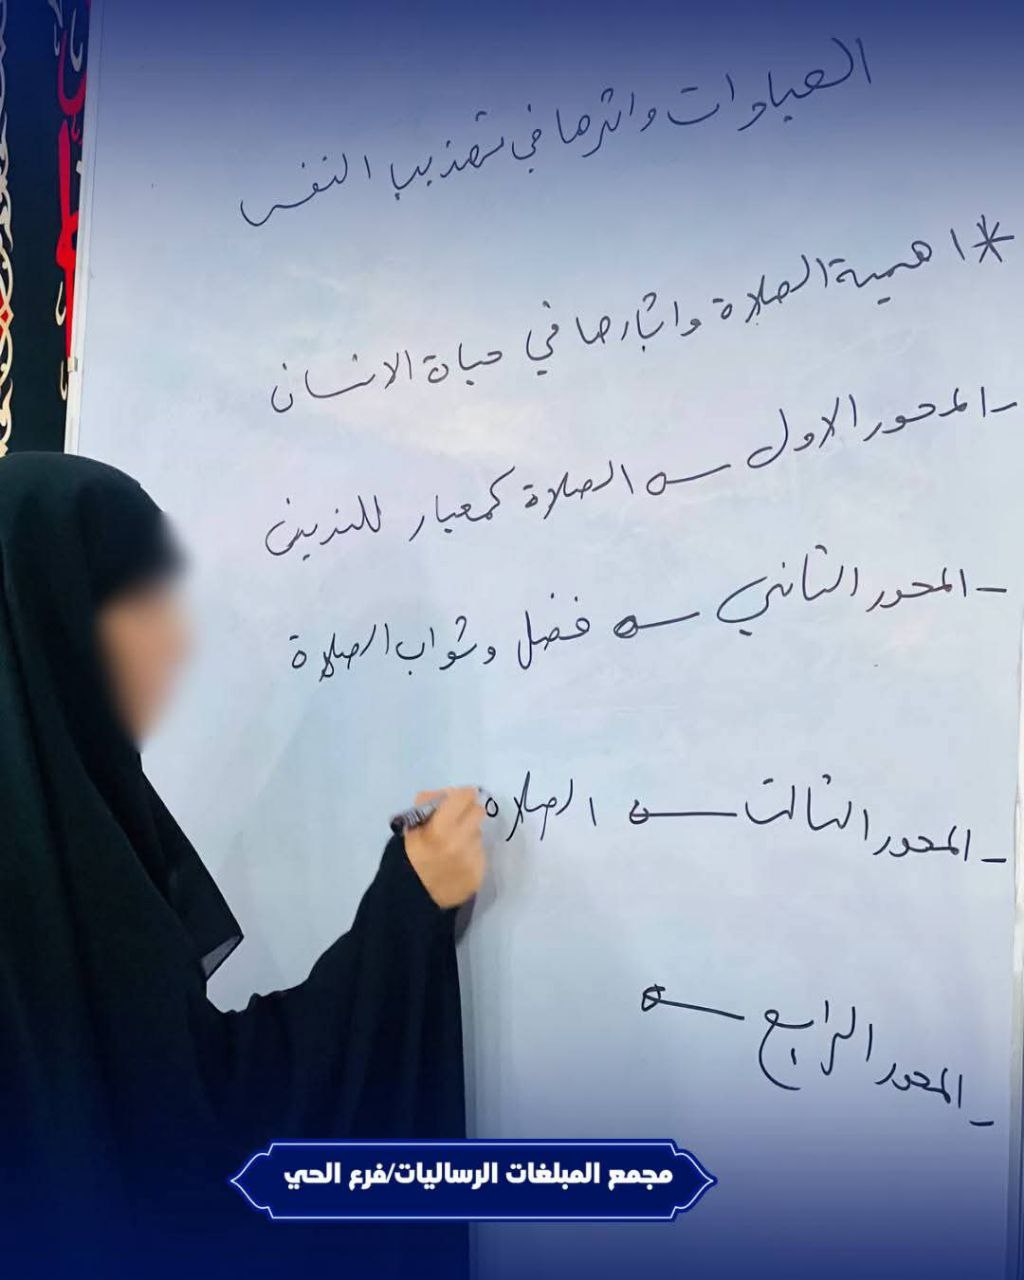 العبادات واثرها في تهذيب النفس
* اهمية الصلاة واثارها في حياة الانسان
- المحور الاول ← الصلاة كمعيار للتدين
- المحور الثاني ← فضل وثواب الصلاة
- المحور الثالث ← الصلاة
- المحور الرابع ←
مجمع المبلغات الرساليات/فرع الحي